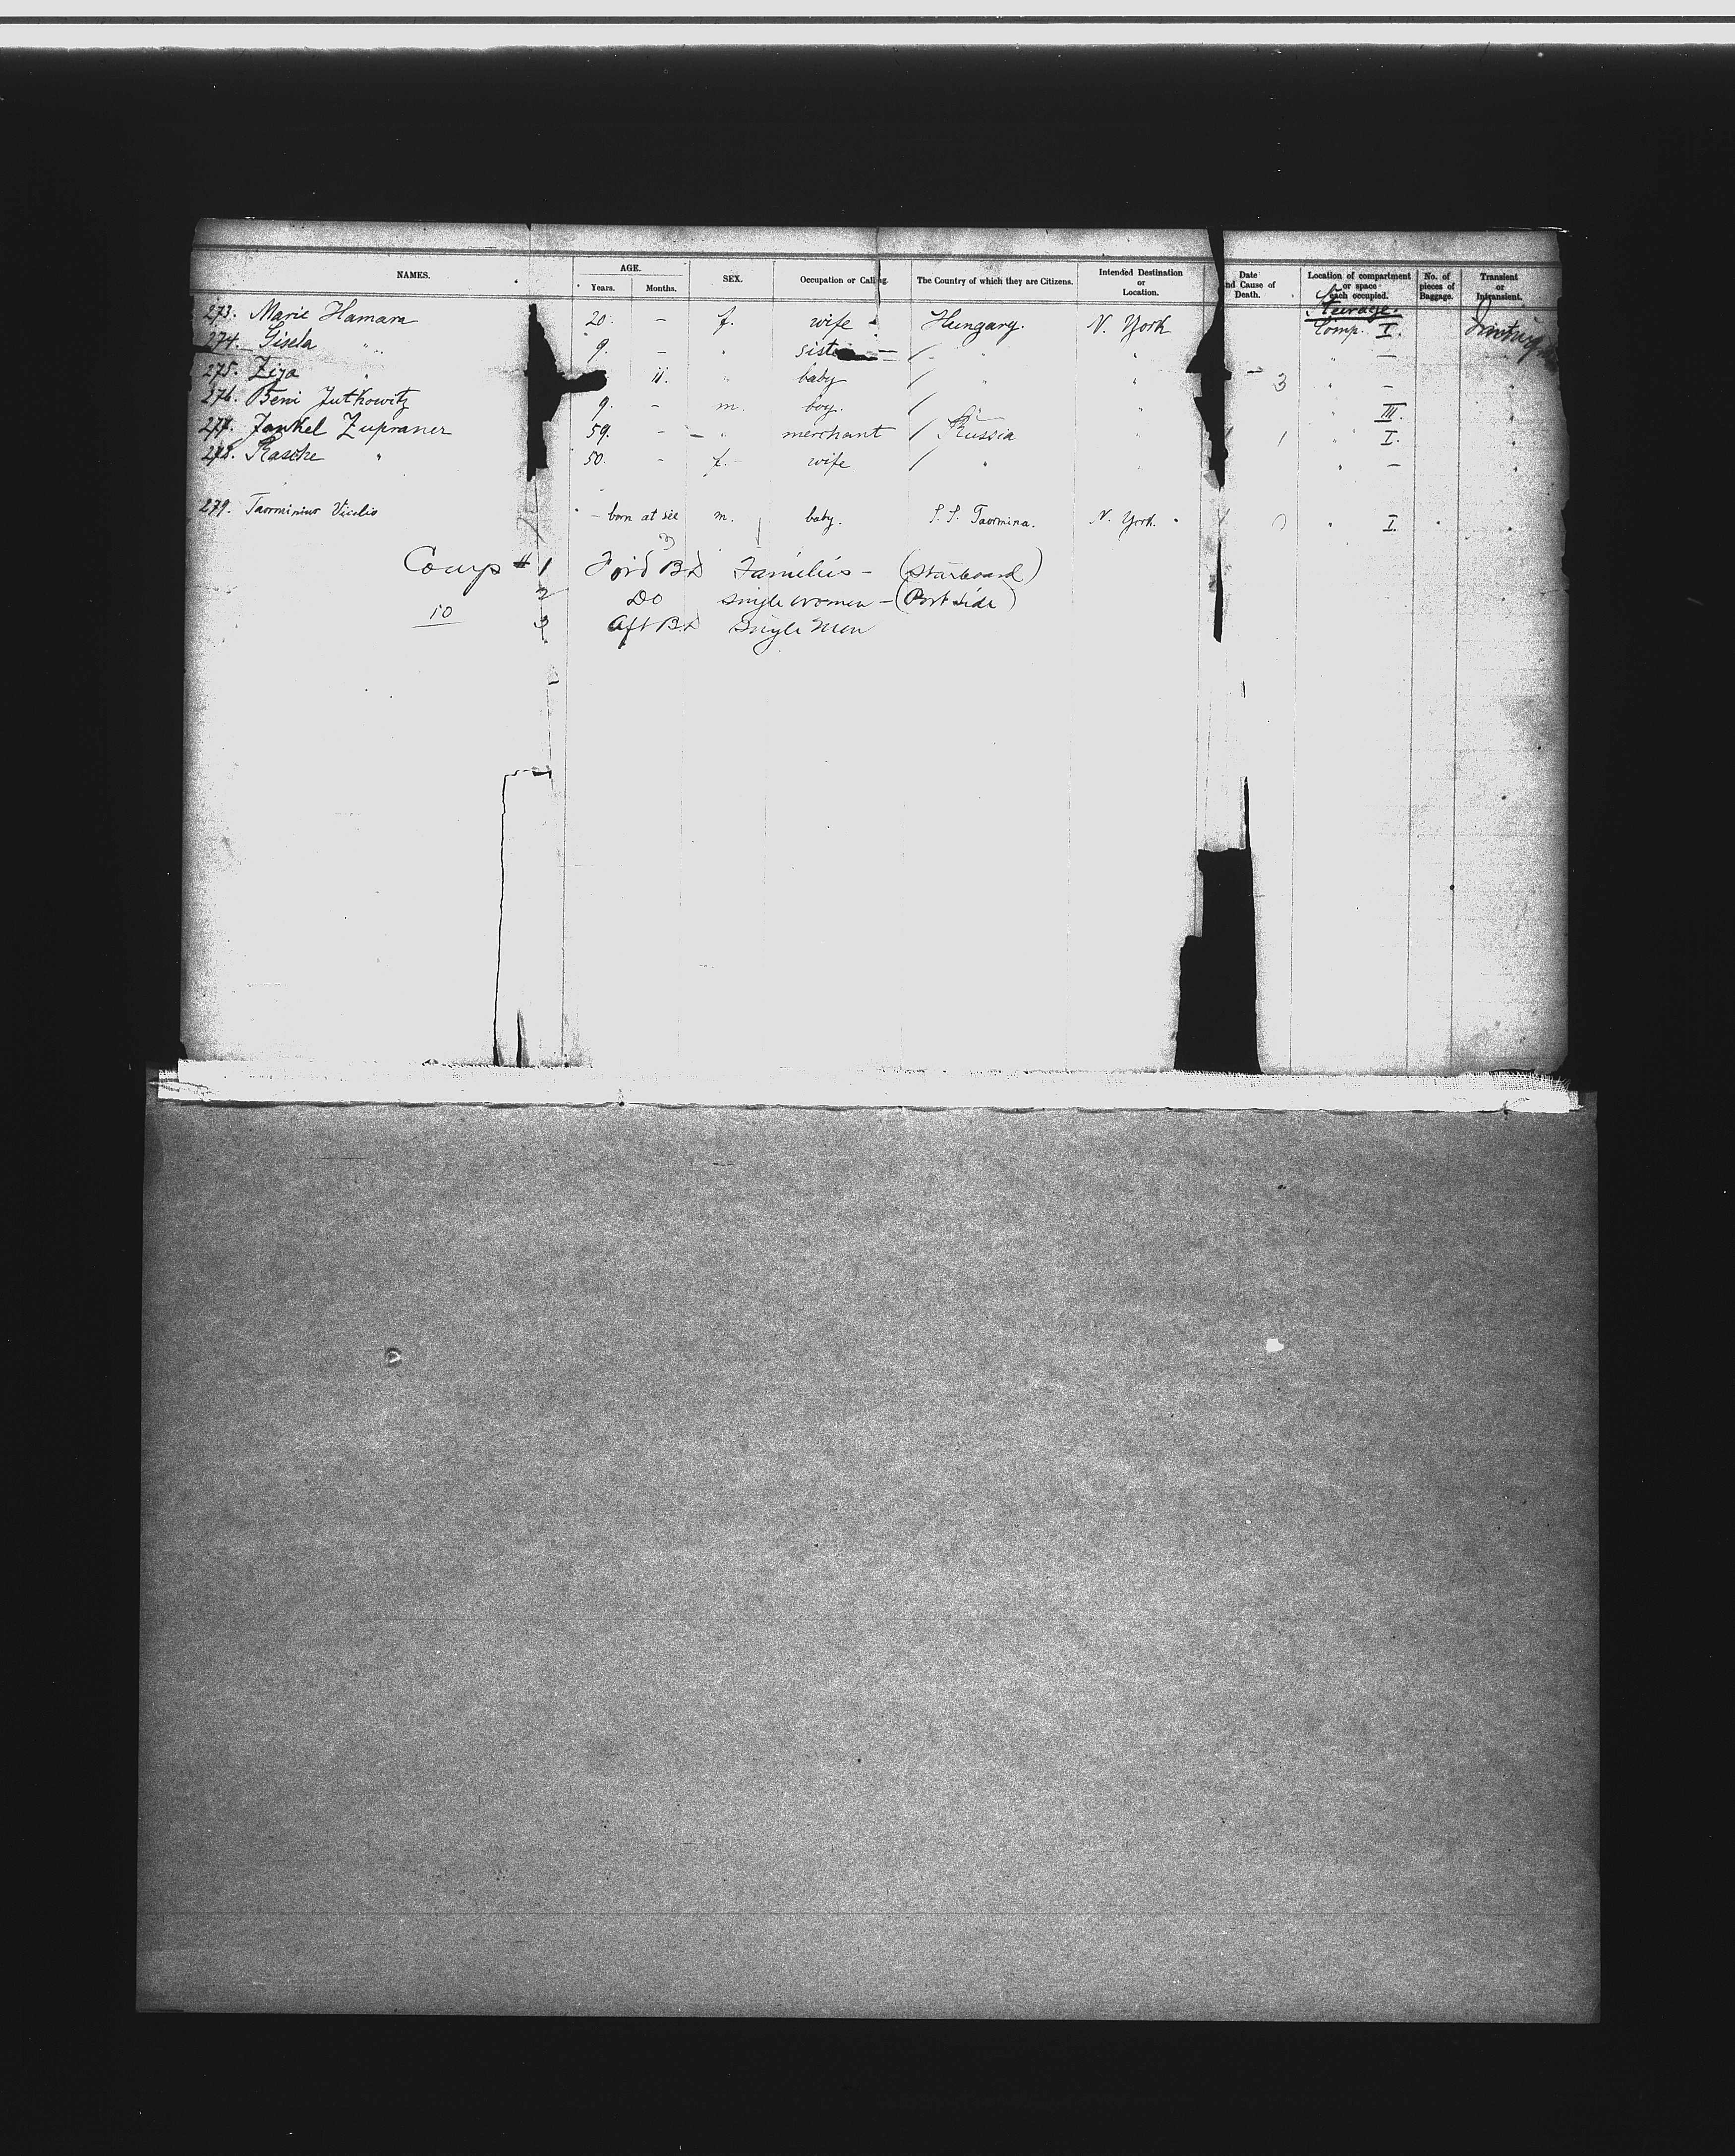 NAMES. AGE. Years. Months. SEX. Occupation or Calling. The Country of which they are Citizens. Intended Destination or Location. Date and Cause of Death. Location of compartment or space each occupied. No. of pieces of Baggage. Transient or Intransient.
Steerage.
273. Marie Hamara 20. – f. wife Hungary. N. York Comp. I.
274. Gisela " 9. – " sister – / " " " –
275. Ziga " 11. " baby / " " – 3 " –
276. Beni Jutkowitz 9. – m. boy. / " " " III.
277. Jankel Zupraner 59. – – " merchant / Russia " 1 " I.
278. Rasche " 50. – f. wife / " " " –
279. Taorminius Vicelio – born at see m. baby. S. S. Taormina. N. York. " I.
Comp # 1 For'd B D Families – (Starboard)
2 Do Single women – (Port side)
10 3 Aft B D Single Men